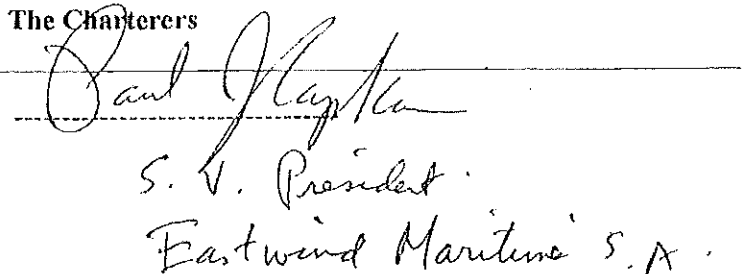 The Charterers
Paul J Kaplan
S. V. President.
Eastwind Maritime S. A.